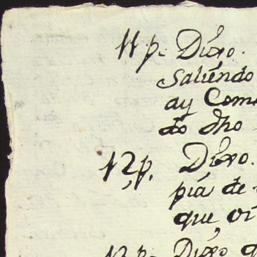 11 p. Dixo.
Saliendo
ay Com
do dho
12, p. Dixo.
pia de
que vi
13 p. Dixo q